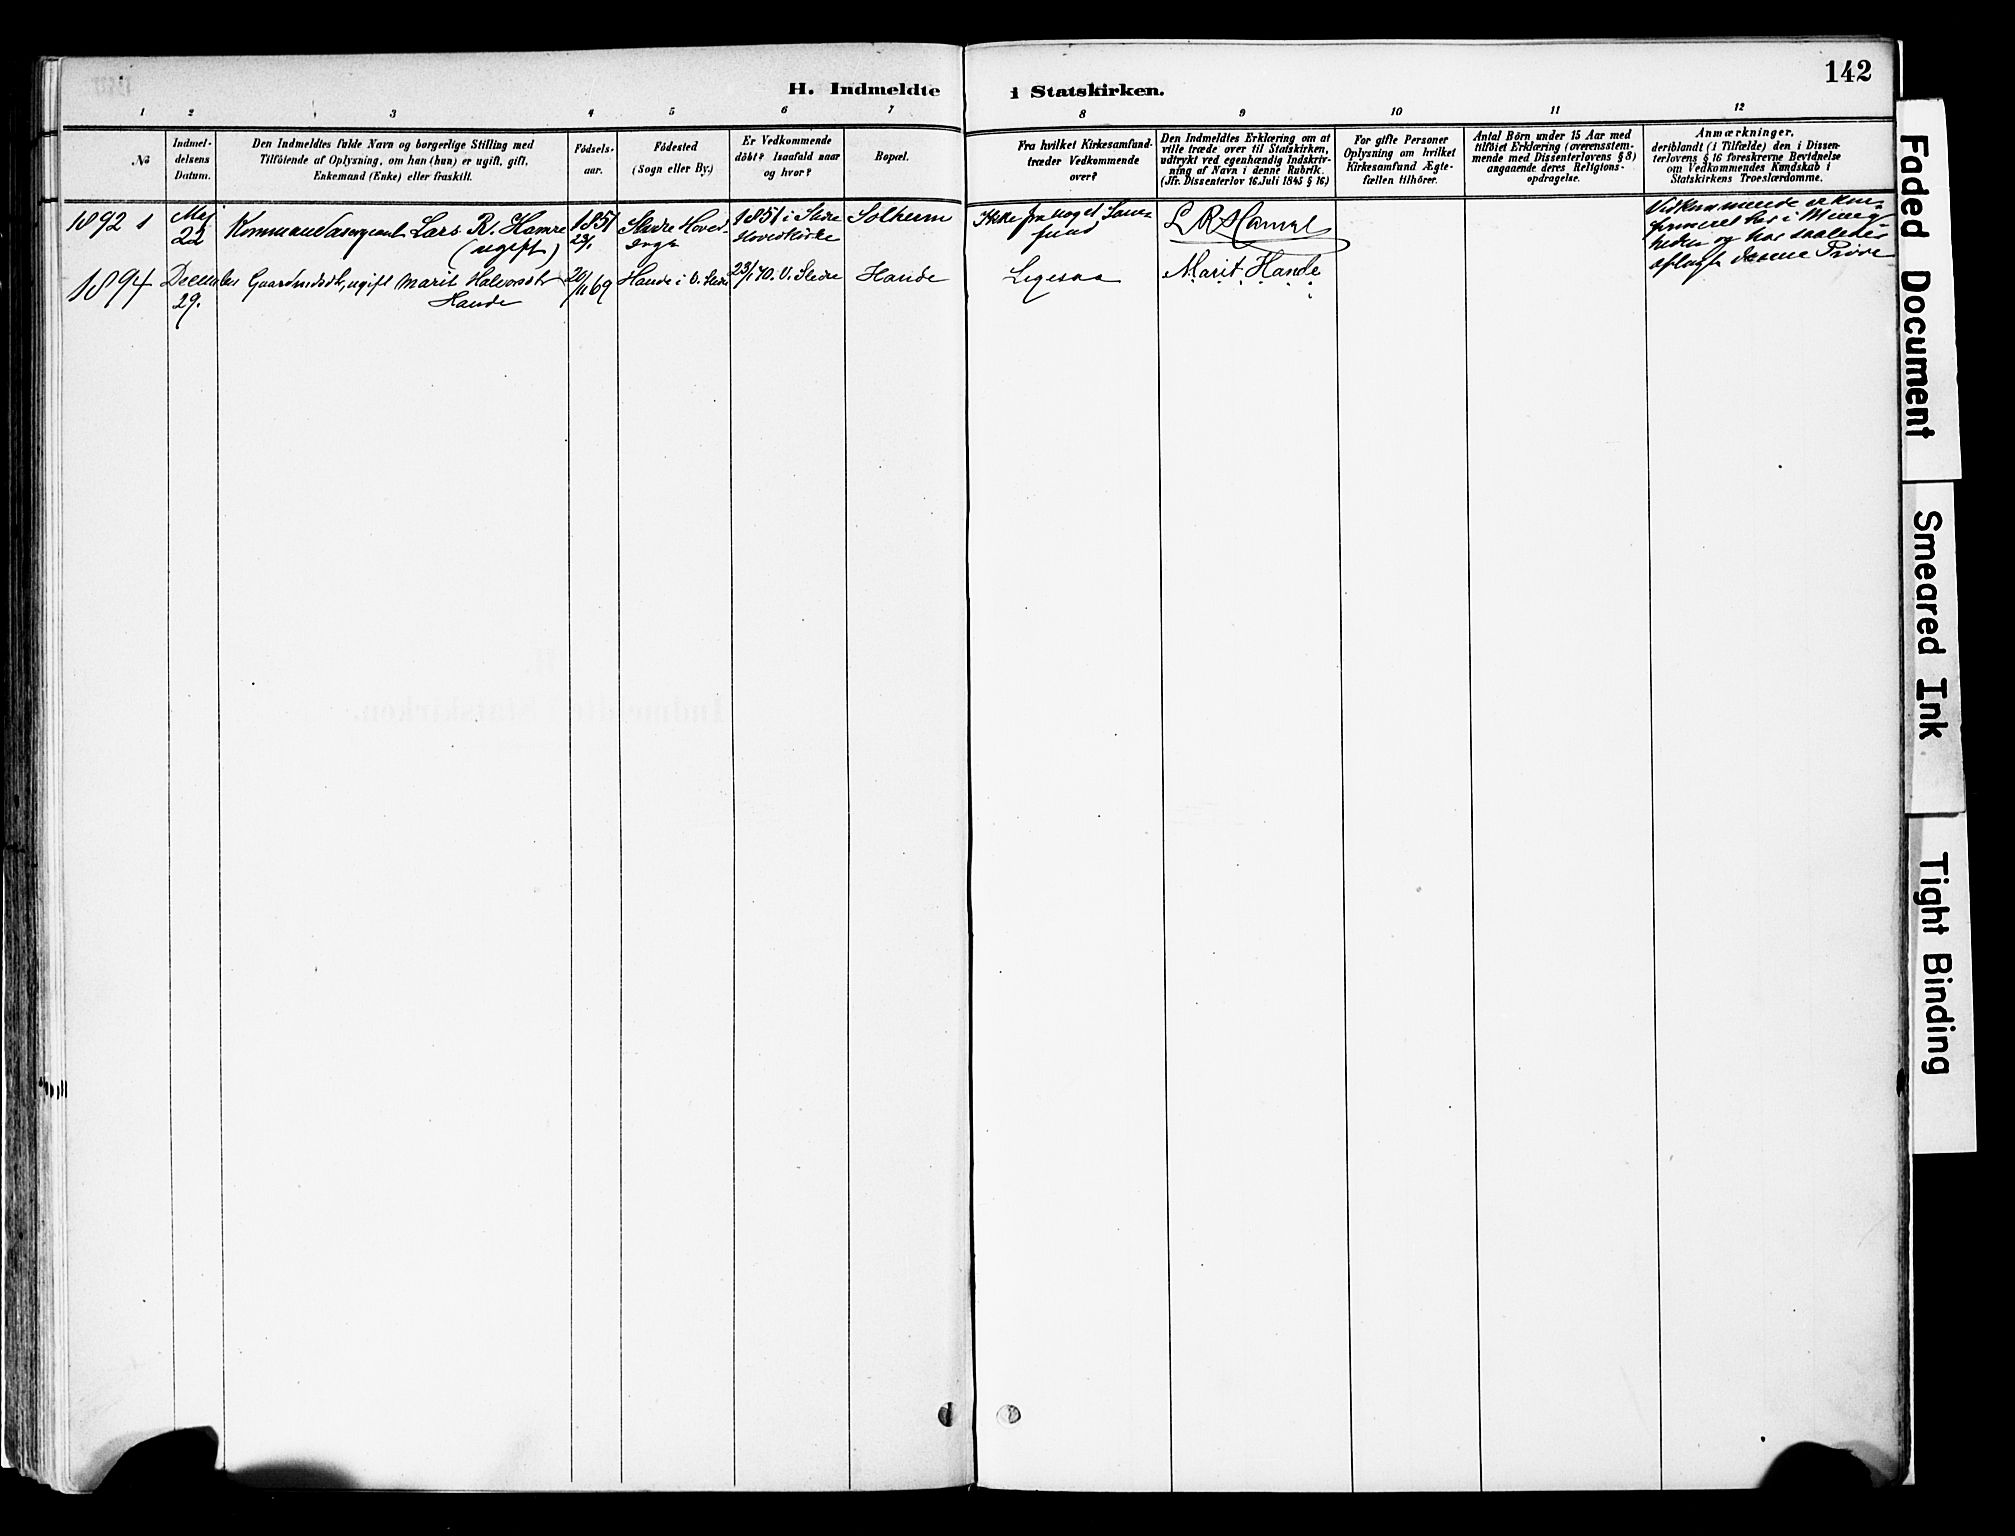 142
H. Indmeldte i Statskirken.
1 2 3 4 5 6 7 8 9 10 11 12
No
Indmel-
delsens
Datum.
Den Indmeldtes fulde Navn og borgerlige Stilling med
Tilföiende af Oplysning, om han (hun) er ugift, gift,
Enkemand (Enke) eller fraskilt.
Födsels-
aar.
Födested
(Sogn eller By.)
Er Vedkommende
döbt? Isaafald naar
og hvor?
Bopæl.
Fra hvilket Kirkesamfund
træder Vedkommende
over?
Den Indmeldtes Erklæring om at
ville træde over til Statskirken,
udtrykt ved egenhændig Indskriv-
ning af Navn i denne Rubrik.
(Jfr. Dissenterlov 16. Juli 1845 § 16)
For gifte Personer
Oplysning om hvilket
Kirkesamfund Ægte-
fællen tilhörer.
Antal Börn under 15 Aar med
tilföiet Erklæring (overensstem-
mende med Dissenterlovens § 8)
angaaende deres Religions-
opdragelse.
Anmærkninger,
deriblandt (i Tilfælde) den i Dissen-
terlovens § 16 foreskrevne Bevidnelse
om Vedkommendes Kundskab i
Statskirkens Troeslærdomme.
1892 1
Mej
22
Kommandersergeant Lars R. Hamre
(ugift)
1851
23/1
Slidre Hoved-
sogn
1851 i Slidre
Hovedkirke
Solheim
Ikke fra noget Sam-
fund
L R Hamre
Vedkommende er kon-
firmeret her i Menig-
heden og har saaledes
aflagt denne Pröve
1894
December
29.
Gaardmdsdt, ugift Marit Halvorsdtr
Hande
20/11 69
Hande i V. Slidre
23/1 70. V. Slidre
Hande
Ligesaa
Marit Hande
Faded Document
Smeared Ink
Tight Binding